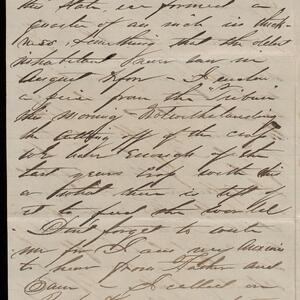 the State, ice formed a
quarter of an inch in thick-
ness, something that the oldest
inhabitant never saw in
August before - I enclose
a piece from the "Tribune"
this morning - Notwithstanding
the cutting off of the crops
we have enough of the
last years crop with this
or what there is left of
it to feed the world
Don't forget to write
me for I am very anxious
to hear from Father and
Sam - I called on